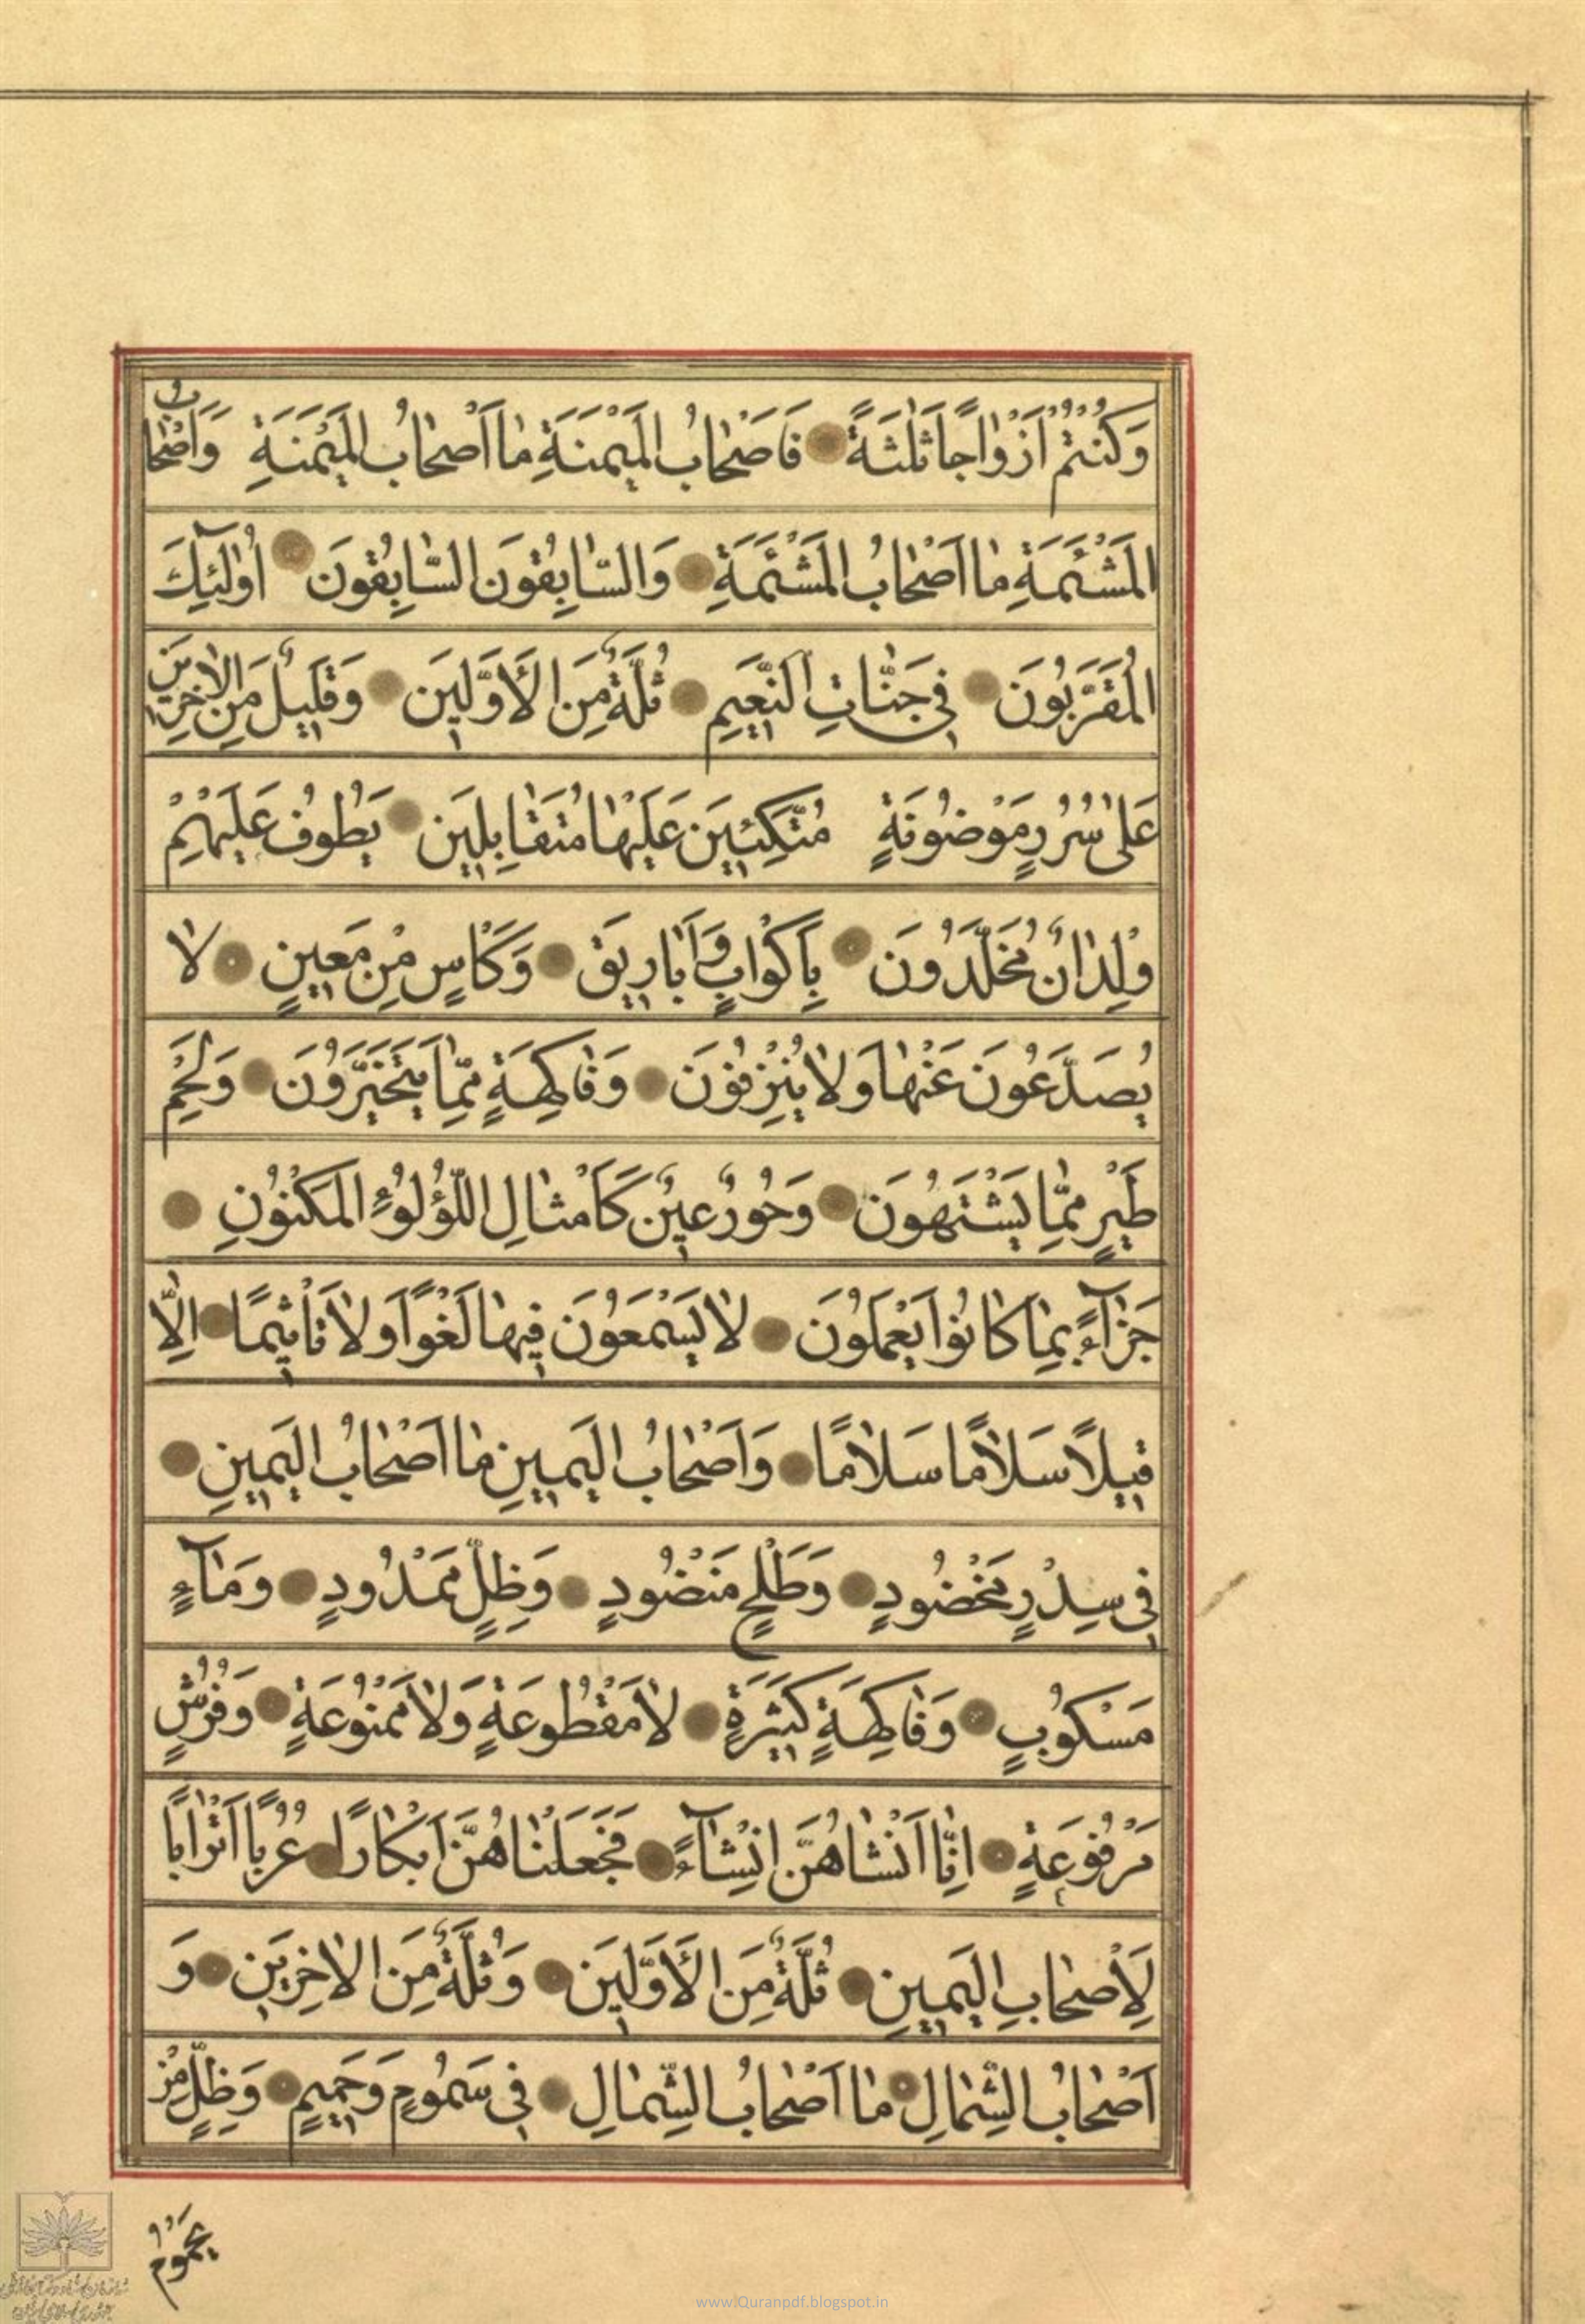 وَكُنْتُمْ اَزْوٰاجًا ثَلٰثَةً فَاَصْحٰابُ الْمَيْمَنَةِ مٰا اَصْحٰابُ الْمَيْمَنَةِ وَاَصْحٰابُ
الْمَشْئَمَةِ مٰا اَصْحٰابُ الْمَشْئَمَةِ وَالسّٰابِقُونَ السّٰابِقُونَ اُولٰئِكَ
الْمُقَرَّبُونَ فِي جَنّٰاتِ النَّعِيمِ ثُلَّةٌ مِنَ الْأَوَّلِينَ وَقَلِيلٌ مِنَ الْاٰخِرِينَ
عَلٰى سُرُرٍ مَوْضُونَةٍ مُتَّكِئِينَ عَلَيْهٰا مُتَقٰابِلِينَ يَطُوفُ عَلَيْهِمْ
وِلْدٰانٌ مُخَلَّدُونَ بِاَكْوٰابٍ وَاَبٰارِيقَ وَكَاْسٍ مِنْ مَعِينٍ لٰا
يُصَدَّعُونَ عَنْهٰا وَلٰا يُنْزِفُونَ وَفٰاكِهَةٍ مِمّٰا يَتَخَيَّرُونَ وَلَحْمِ
طَيْرٍ مِمّٰا يَشْتَهُونَ وَحُورٌ عِينٌ كَاَمْثٰالِ اللُّؤْلُؤِ الْمَكْنُونِ
جَزٰآءً بِمٰا كٰانُوا يَعْمَلُونَ لٰا يَسْمَعُونَ فِيهٰا لَغْوًا وَلٰا تَاْثِيمًا اِلّٰا
قِيلًا سَلٰامًا سَلٰامًا وَاَصْحٰابُ الْيَمِينِ مٰا اَصْحٰابُ الْيَمِينِ
فِي سِدْرٍ مَخْضُودٍ وَطَلْحٍ مَنْضُودٍ وَظِلٍّ مَمْدُودٍ وَمٰآءٍ
مَسْكُوبٍ وَفٰاكِهَةٍ كَثِيرَةٍ لٰا مَقْطُوعَةٍ وَلٰا مَمْنُوعَةٍ وَفُرُشٍ
مَرْفُوعَةٍ اِنّٰا اَنْشَاْنٰاهُنَّ اِنْشٰآءً فَجَعَلْنٰاهُنَّ اَبْكٰارًا عُرُبًا اَتْرٰابًا
لِاَصْحٰابِ الْيَمِينِ ثُلَّةٌ مِنَ الْأَوَّلِينَ وَثُلَّةٌ مِنَ الْاٰخِرِينَ وَ
اَصْحٰابُ الشِّمٰالِ مٰا اَصْحٰابُ الشِّمٰالِ فِي سَمُومٍ وَحَمِيمٍ وَظِلٍّ مِنْ
يَحْمُومٍ
www.Quranpdf.blogspot.in